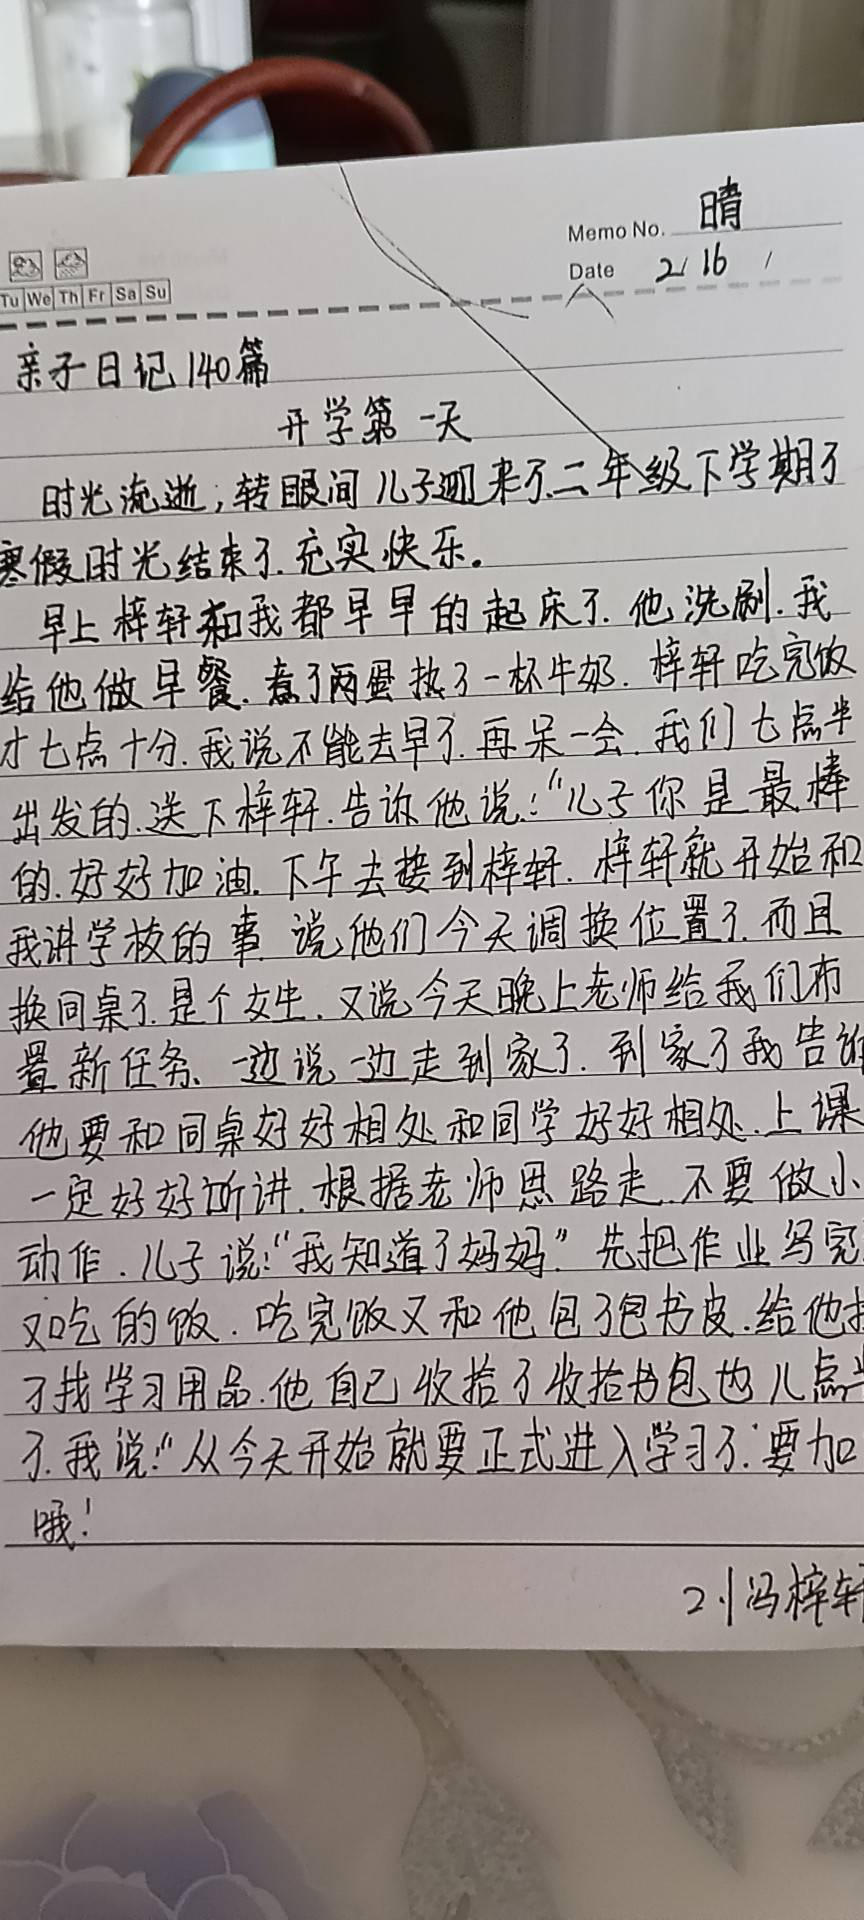 Memo No. 晴
Date 2/16/
Tu We Th Fr Sa Su
亲子日记140篇
开学第一天
时光流逝，转眼间儿子迎来了二年级下学期了
寒假时光结束了.充实快乐。
早上梓轩和我都早早的起床了.他洗刷.我
给他做早餐.煮了两蛋热了一杯牛奶.梓轩吃完饭
才七点十分.我说不能去早了.再呆一会.我们七点半
出发的.送下梓轩.告诉他说:“儿子你是最棒
的.好好加油.下午去接到梓轩.梓轩就开始和
我讲学校的事.说他们今天调换位置了.而且
换同桌了.是个女生.又说今天晚上老师给我们布
置新任务、一边说一边走到家了.到家了我告诉
他要和同桌好好相处和同学好好相处.上课
一定好好听讲.根据老师思路走.不要做小
动作.儿子说:“我知道了妈妈”先把作业写完
又吃的饭.吃完饭又和他包了包书皮.给他找
了找学习用品.他自己收拾了收拾书包也八点半
了.我说:“从今天开始就要正式进入学习了.要加
哦！
2.1冯梓轩